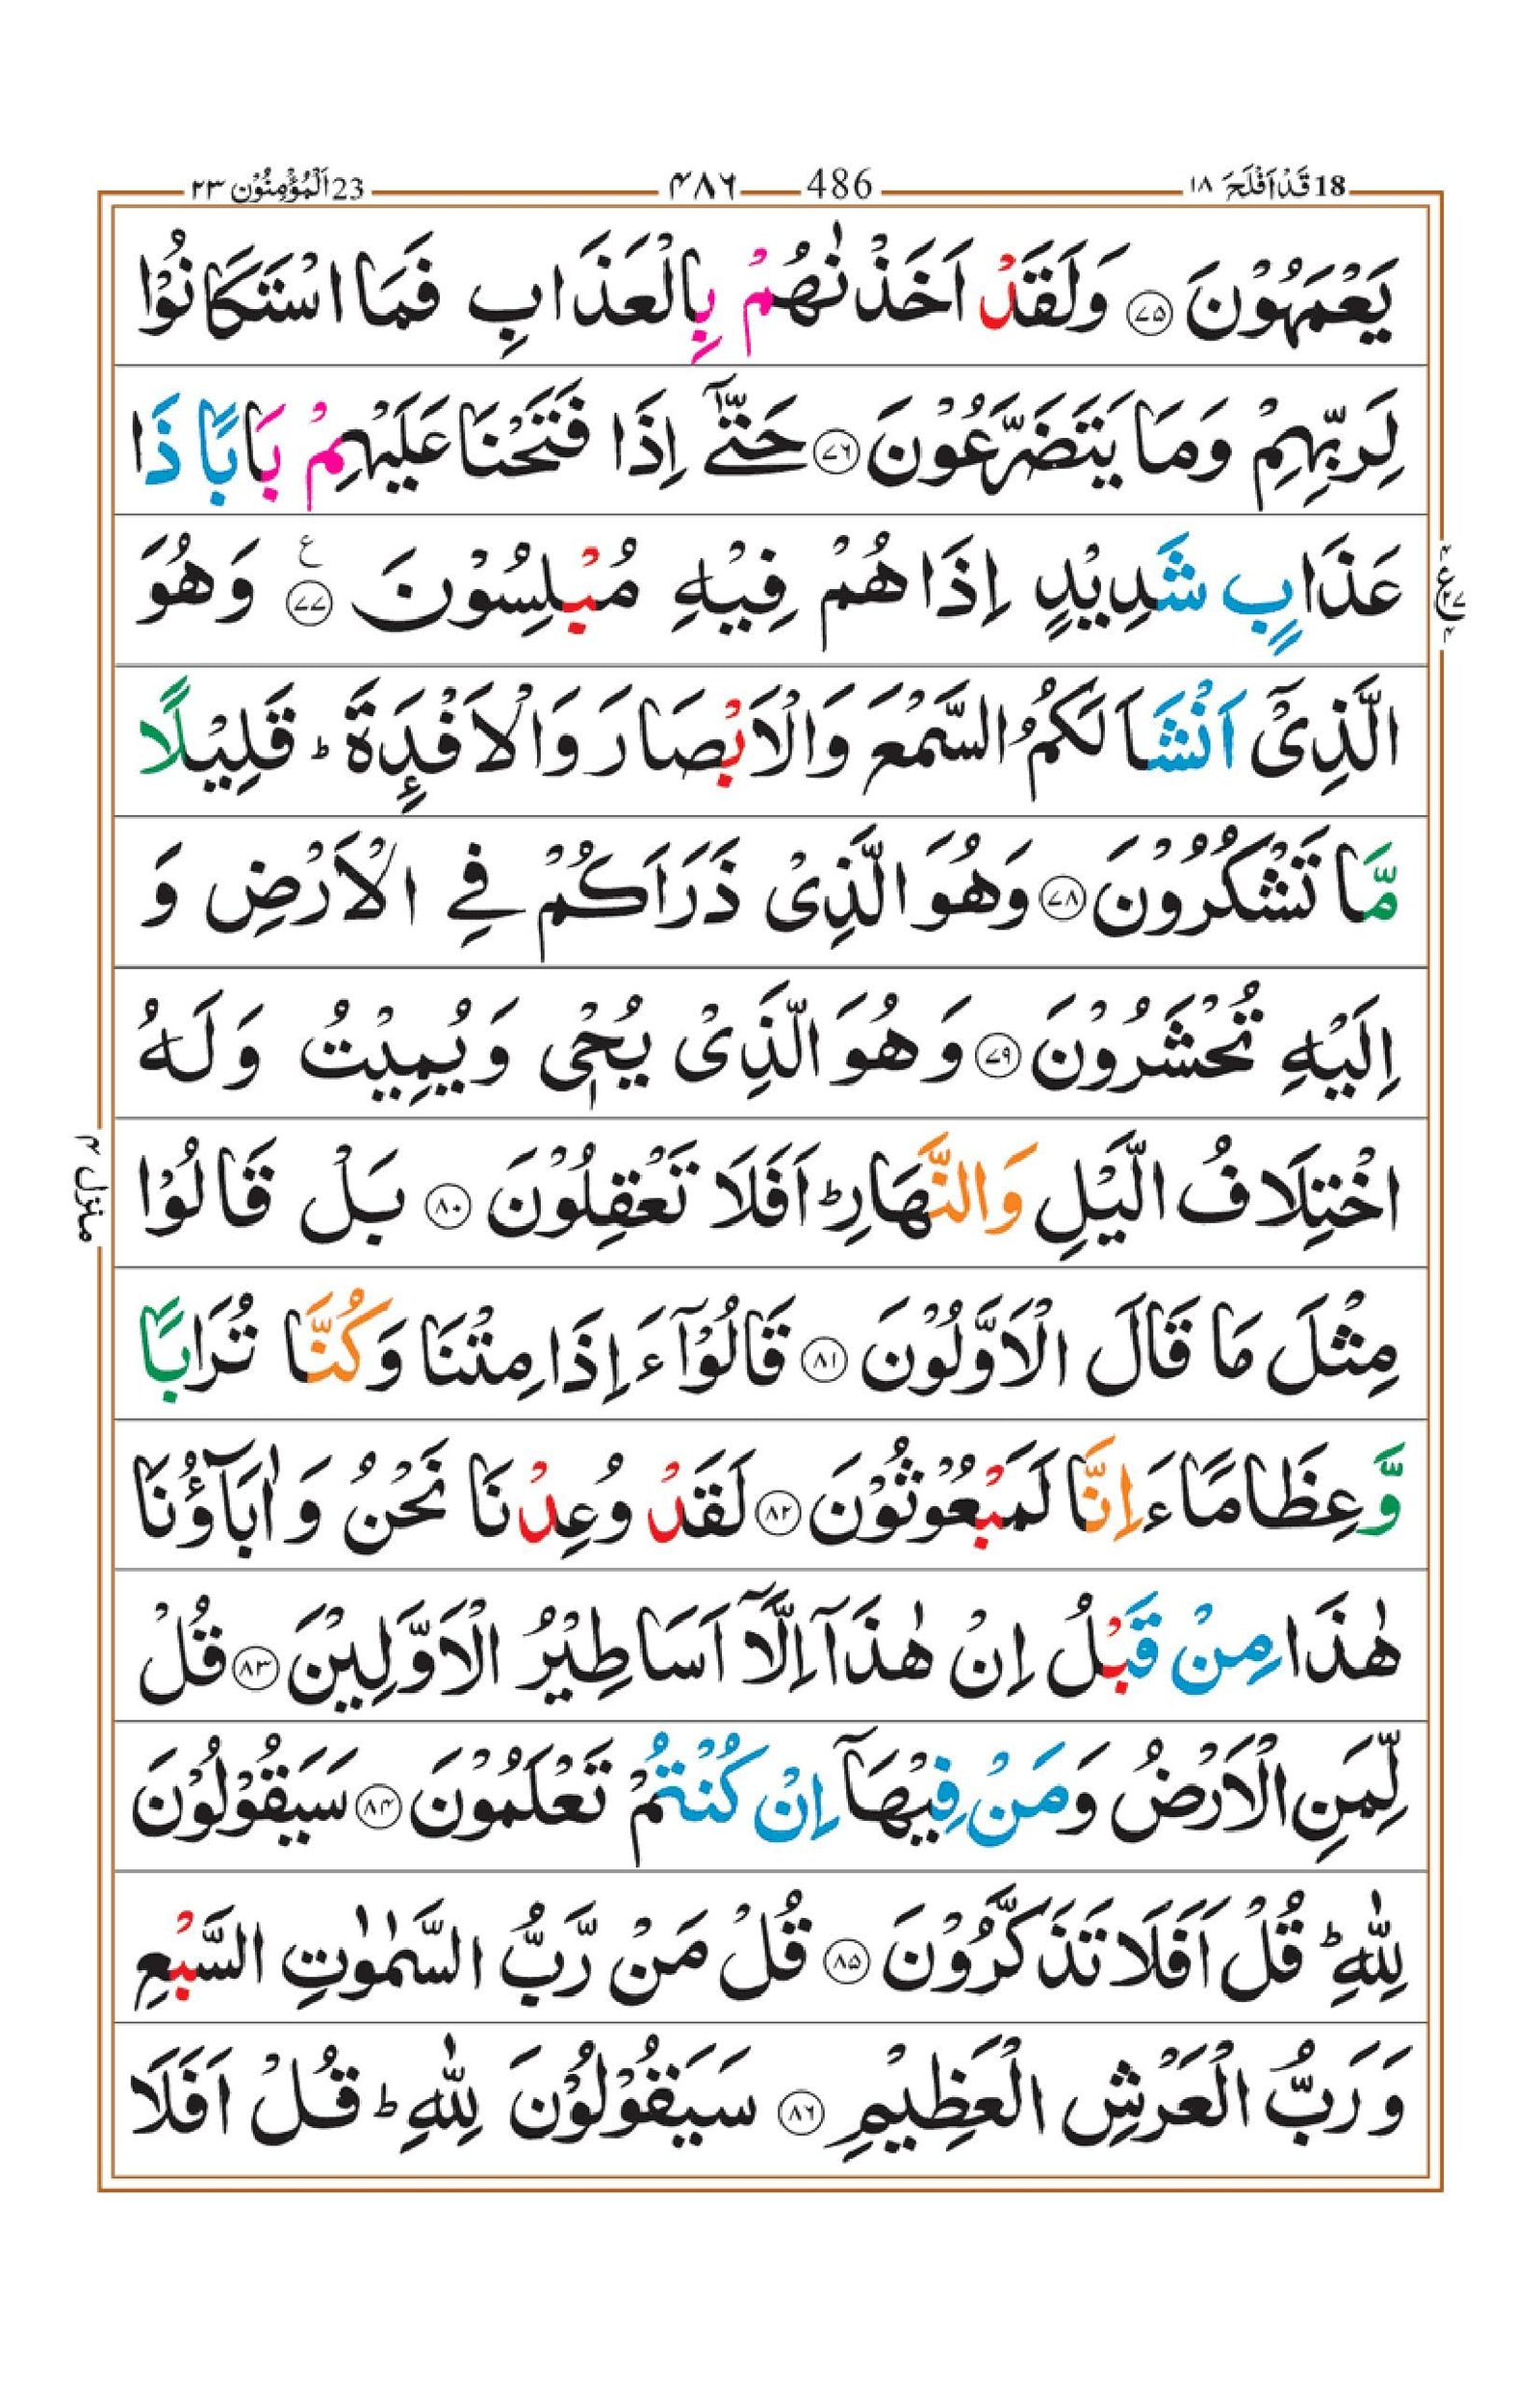 18 قَدْ اَفْلَحَ ١٨ 486 ۴۸۶ 23 اَلْمُؤْمِنُوْن ٢٣
يَعْمَهُوْنَ ۷۵ وَلَقَدْ اَخَذْنٰهُمْ بِالْعَذَابِ فَمَا اسْتَكَانُوْا
لِرَبِّهِمْ وَمَا يَتَضَرَّعُوْنَ ۷۶ حَتّٰۤى اِذَا فَتَحْنَا عَلَيْهِمْ بَابًا ذَا
عَذَابٍ شَدِيْدٍ اِذَا هُمْ فِيْهِ مُبْلِسُوْنَ ۷۷ ع وَهُوَ
الَّذِىْۤ اَنْشَاَ لَكُمُ السَّمْعَ وَالْاَبْصَارَ وَالْاَفْـِٕدَةَ ؕ قَلِيْلًا
مَّا تَشْكُرُوْنَ ۷۸ وَهُوَ الَّذِىْ ذَرَاَكُمْ فِى الْاَرْضِ وَ
اِلَيْهِ تُحْشَرُوْنَ ۷۹ وَهُوَ الَّذِىْ يُحْىٖ وَيُمِيْتُ وَلَهُ
اخْتِلَافُ الَّيْلِ وَالنَّهَارِ ؕ اَفَلَا تَعْقِلُوْنَ ۸۰ بَلْ قَالُوْا
مِثْلَ مَا قَالَ الْاَوَّلُوْنَ ۸۱ قَالُوْۤا ءَاِذَا مِتْنَا وَكُنَّا تُرَابًا
وَّعِظَامًا ءَاِنَّا لَمَبْعُوْثُوْنَ ۸۲ لَقَدْ وُعِدْنَا نَحْنُ وَاٰبَآؤُنَا
هٰذَا مِنْ قَبْلُ اِنْ هٰذَاۤ اِلَّاۤ اَسَاطِيْرُ الْاَوَّلِيْنَ ۸۳ قُلْ
لِّمَنِ الْاَرْضُ وَمَنْ فِيْهَاۤ اِنْ كُنْتُمْ تَعْلَمُوْنَ ۸۴ سَيَقُوْلُوْنَ
لِلّٰهِ ؕ قُلْ اَفَلَا تَذَكَّرُوْنَ ۸۵ قُلْ مَنْ رَّبُّ السَّمٰوٰتِ السَّبْعِ
وَرَبُّ الْعَرْشِ الْعَظِيْمِ ۸۶ سَيَقُوْلُوْنَ لِلّٰهِ ؕ قُلْ اَفَلَا
منزل ۴